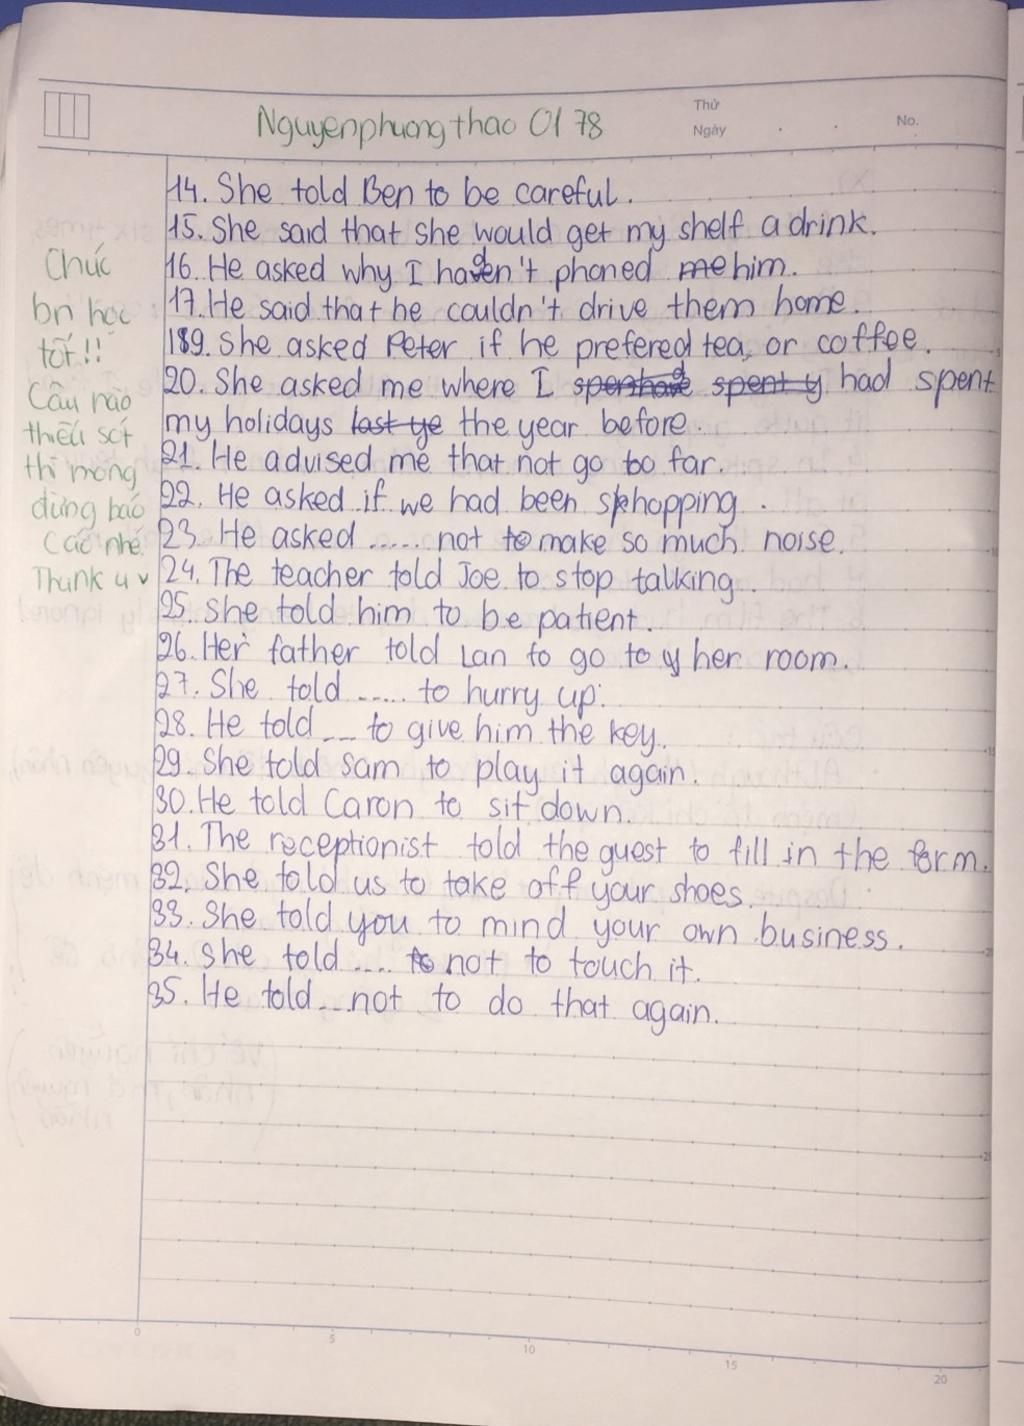 Nguyenphuongthao 01 78
Thứ
Ngày
No.
14. She told Ben to be careful.
15. She said that she would get my shelf a drink.
16. He asked why I hadn't phoned me him.
17. He said that he couldn't drive them home.
189. She asked Peter if he prefered tea, or coffee.
20. She asked me where I spent y had spent
my holidays last ye the year before.
21. He advised me that not go to far.
22. He asked if we had been shopping.
23. He asked ..... not to make so much noise.
24. The teacher told Joe to stop talking.
25. She told him to be patient.
26. Her father told Lan to go to y her room.
27. She told ..... to hurry up.
28. He told ... to give him the key.
29. She told Sam to play it again.
30. He told Caron to sit down.
31. The receptionist told the guest to fill in the form.
32. She told us to take off your shoes.
33. She told you to mind your own business.
34. She told .... to not to touch it.
35. He told ... not to do that again.
Chúc
bn học
tốt!!
Câu nào
thiếu sót
thì mong
đừng báo
cáo nhé
Thank u v
0
5
10
15
20